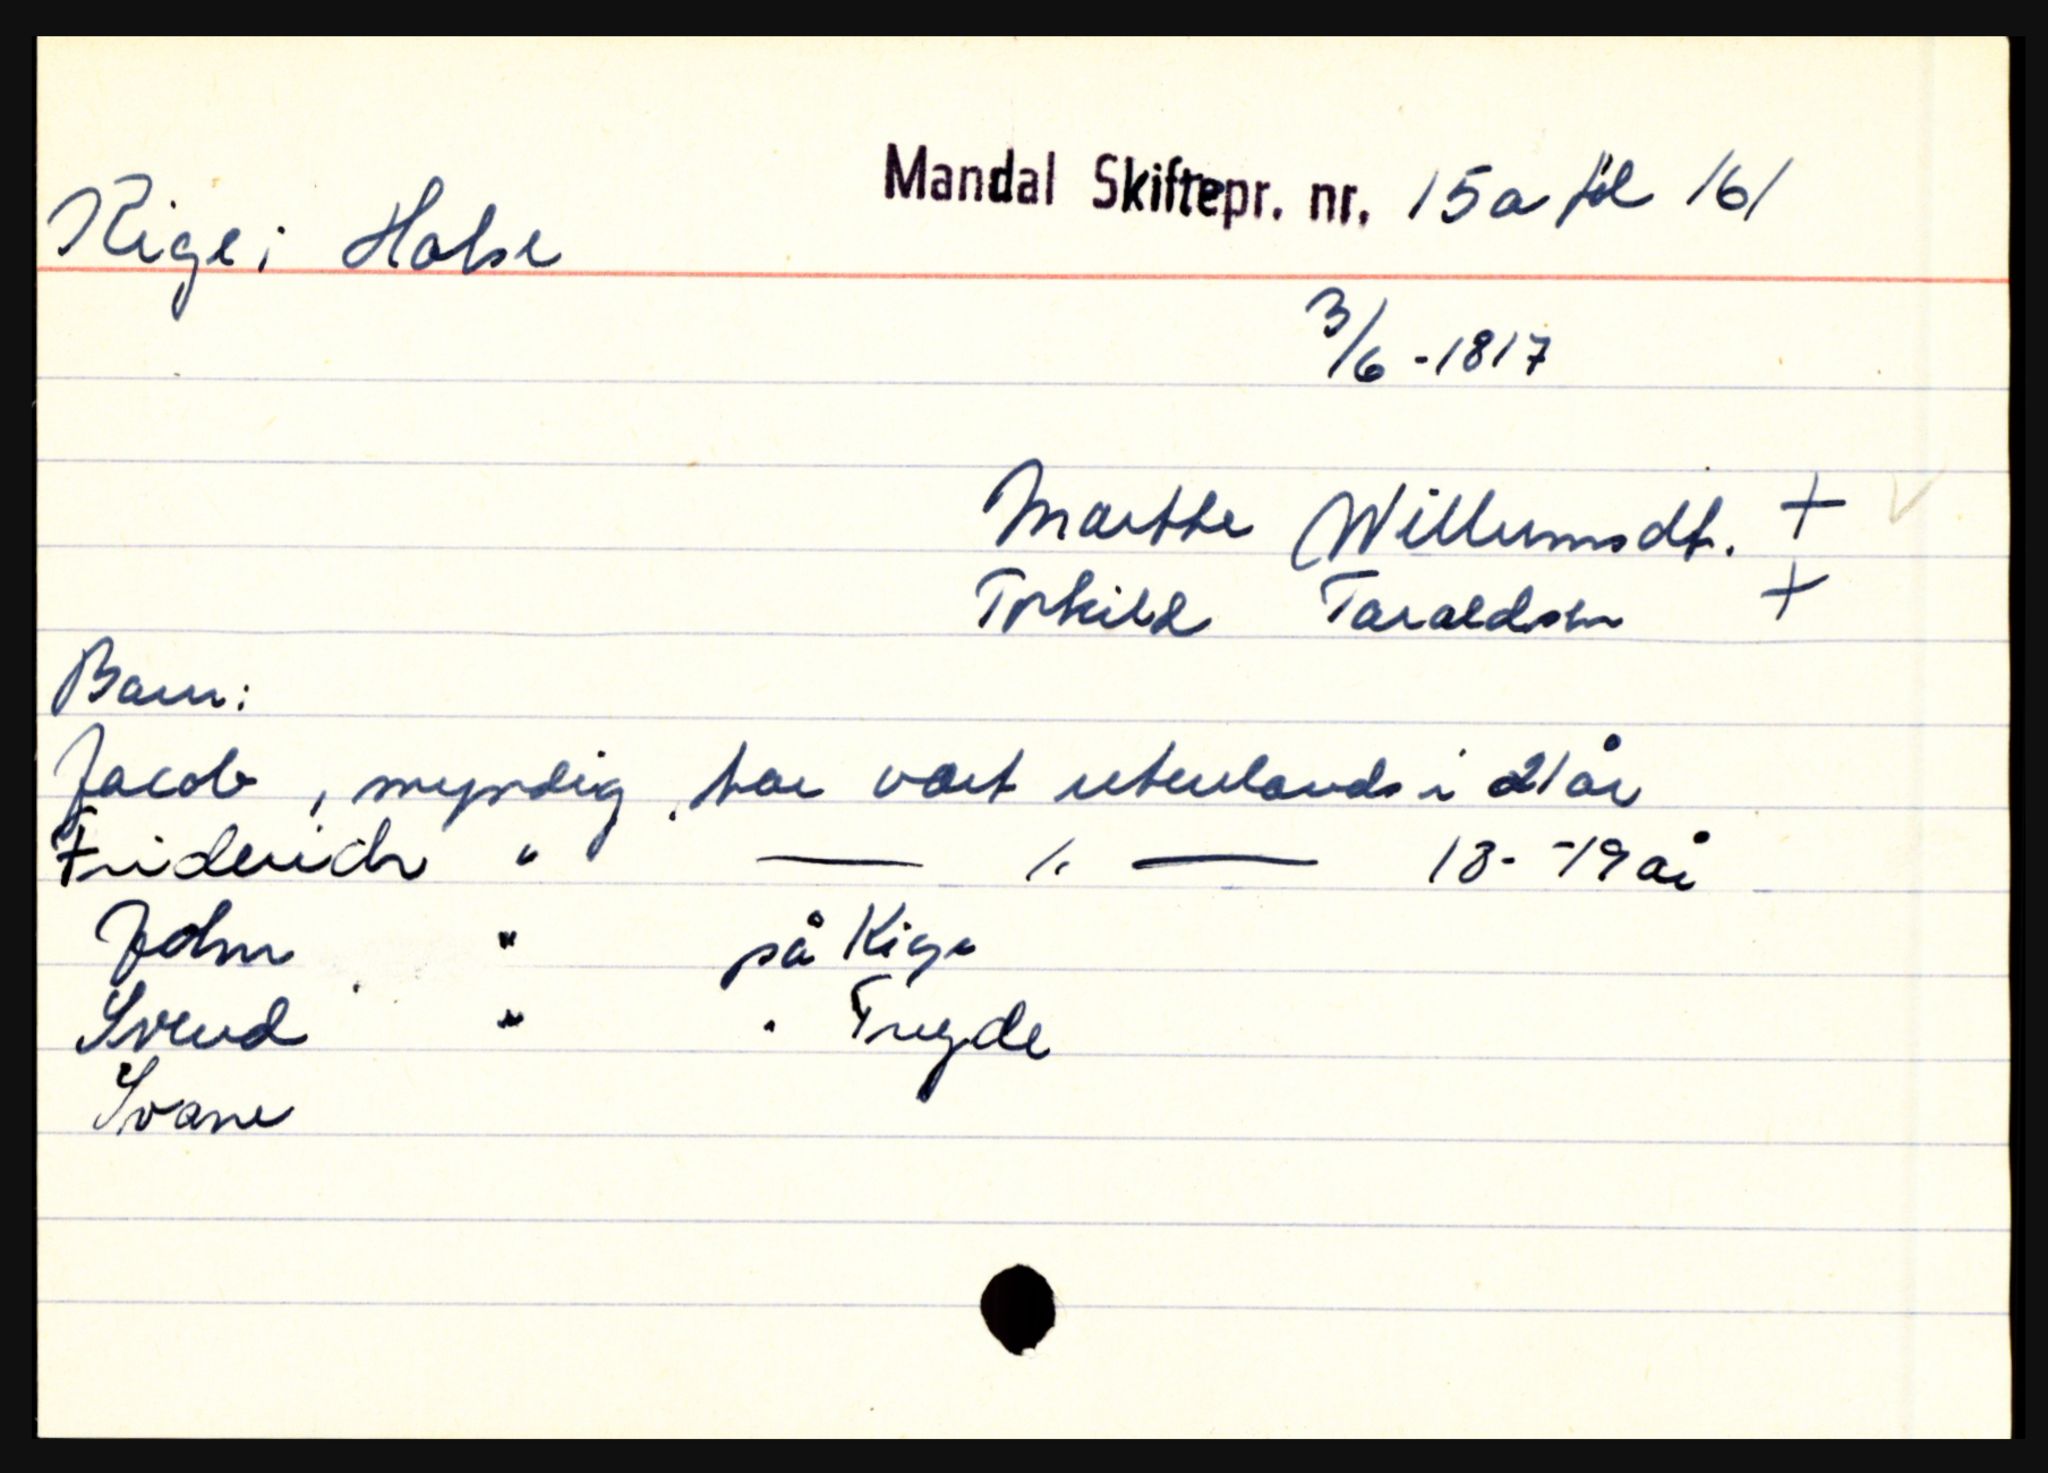 Mandal Skiftepr. nr. 15a fol 161
Kige i Halse
3/6 - 1817
Marthe Willumsdt. +
Torkild Taraldsen +
Barn:
Jacob, myndig, har vært utenlands i 21 år
Friderich " — " — 18--19 år
John " på Kige
Svend " " Tregde
Svane